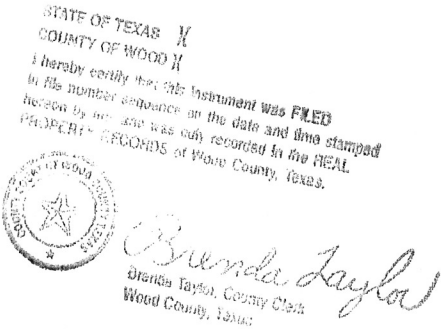 STATE OF TEXAS X
COUNTY OF WOOD X
I hereby certify that this instrument was FILED
in file number sequence on the date and time stamped
hereon by me and was duly recorded in the REAL
PROPERTY RECORDS of Wood County, Texas.
COUNTY COURT OF WOOD COUNTY, TEXAS
Brenda Taylor
Brenda Taylor, County Clerk
Wood County, Texas